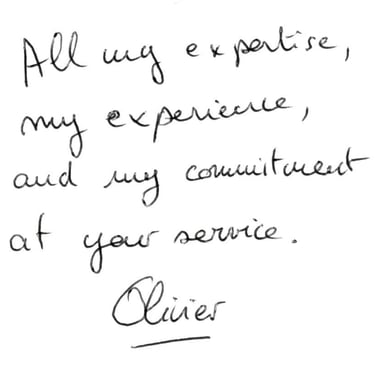 All my expertise,
my experience,
and my commitment
at your service.
Olivier